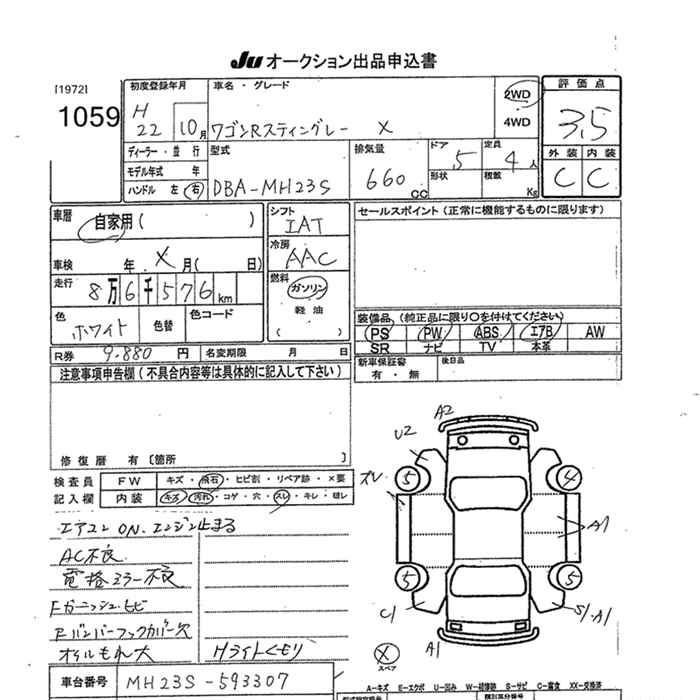 JU オークション出品申込書
[1972]
1059
初度登録年月
H
22 10月
車名・グレード
ワゴンRスティングレー X
2WD
4WD
評価点
3.5
外装 内装
C C
ディーラー・並行
モデル年式 年
ハンドル 左 右
型式
DBA-MH23S
排気量
660 cc
ドア
5
形状
定員
4人
積数
Kg
車歴
自家用( )
車検 年 X 月( 日)
走行
8万6千576km
色
ホワイト
色替
色コード
シフト
IAT
冷房
AAC
燃料
ガソリン
軽油
( )
セールスポイント(正常に機能するものに限ります)
装備品(純正品に限り○を付けてください)
PS PW ABS エアB AW
SR ナビ TV 本革
R券 9.880 円 名変期限 月 日
新車保証書
有・無
後日品
注意事項申告欄(不具合内容等は具体的に記入して下さい)
修復歴 有〔箇所 〕
検査員
記入欄
FW キズ・飛石・ヒビ割・リペア跡・×要
内装 キズ・汚れ・コゲ・穴・スレ・キレ・破レ
エアコンON.エンジン止まる
AC不良
電格ミラー不良
Fガーニッシュ.ヒビ
Rバンパーフックカバー欠
オイルもれ大
Hライトくもり
車台番号 MH23S-593307
A2
U2
ズレ
5
4
A1
5
5
C1
S1.A1
A1
X
スペア
A−キズ E−エクボ U−凹み W−補修跡 S−サビ C−腐食 XX−交換済